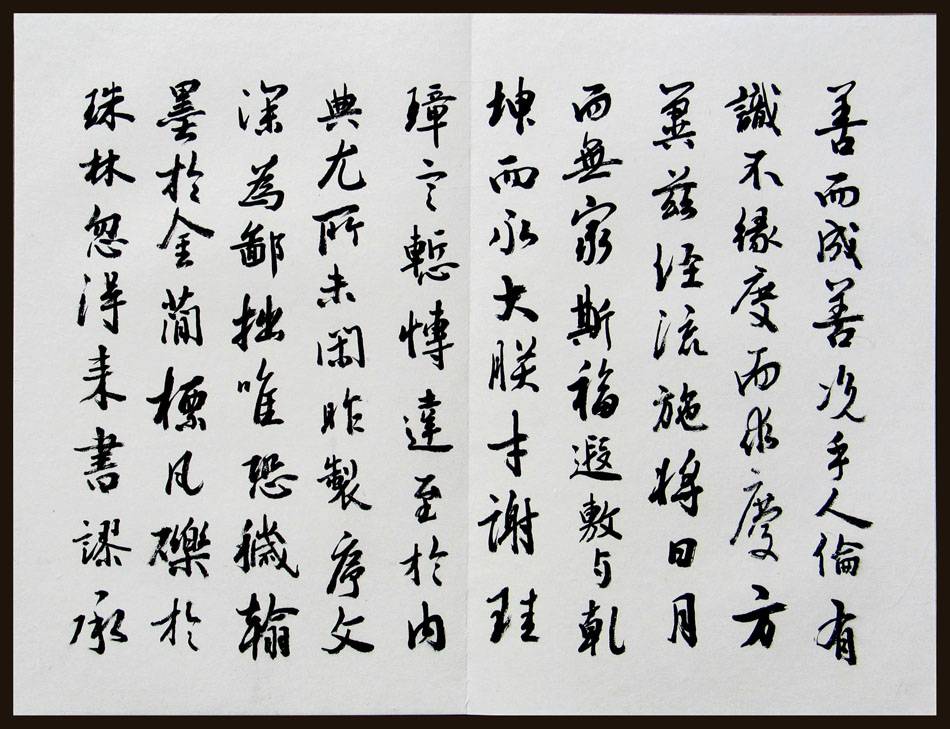 善而成善況乎人倫有
識不緣慶而求慶方
冀茲經流施將日月
而無窮斯福遐敷与乾
坤而永大朕才謝珪
璋言慙博達至於內
典尤所未閑昨製序文
深為鄙拙唯恐穢翰
墨於金簡標瓦礫於
珠林忽得来書謬承